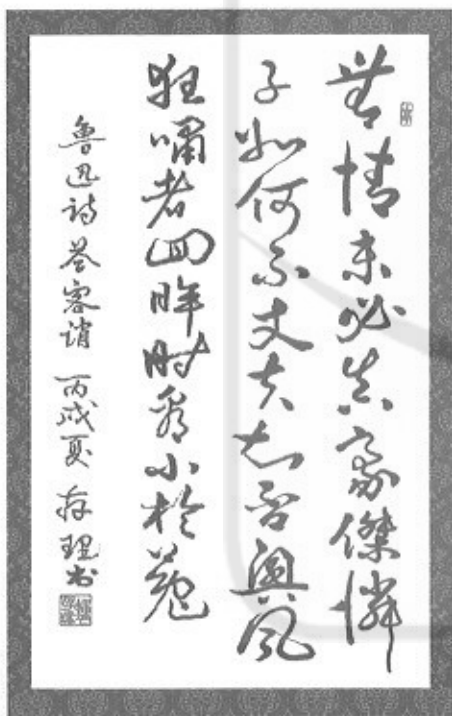 無情未必真豪傑憐
子如何不丈夫知否興風
狂嘯者回眸时看小於菟
魯迅詩答客誚 丙戌夏 存理书